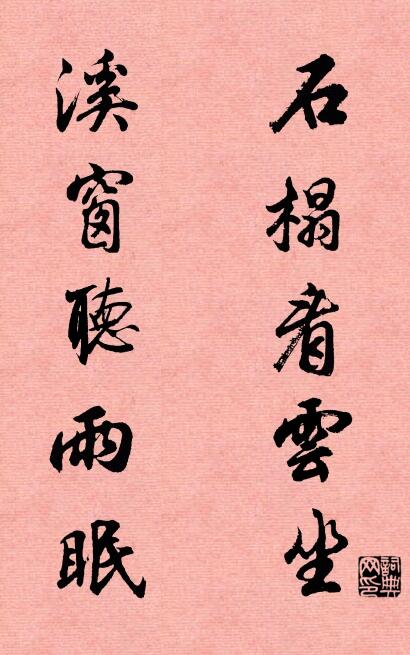 石榻看雲坐
溪窗聽雨眠
詞典網印